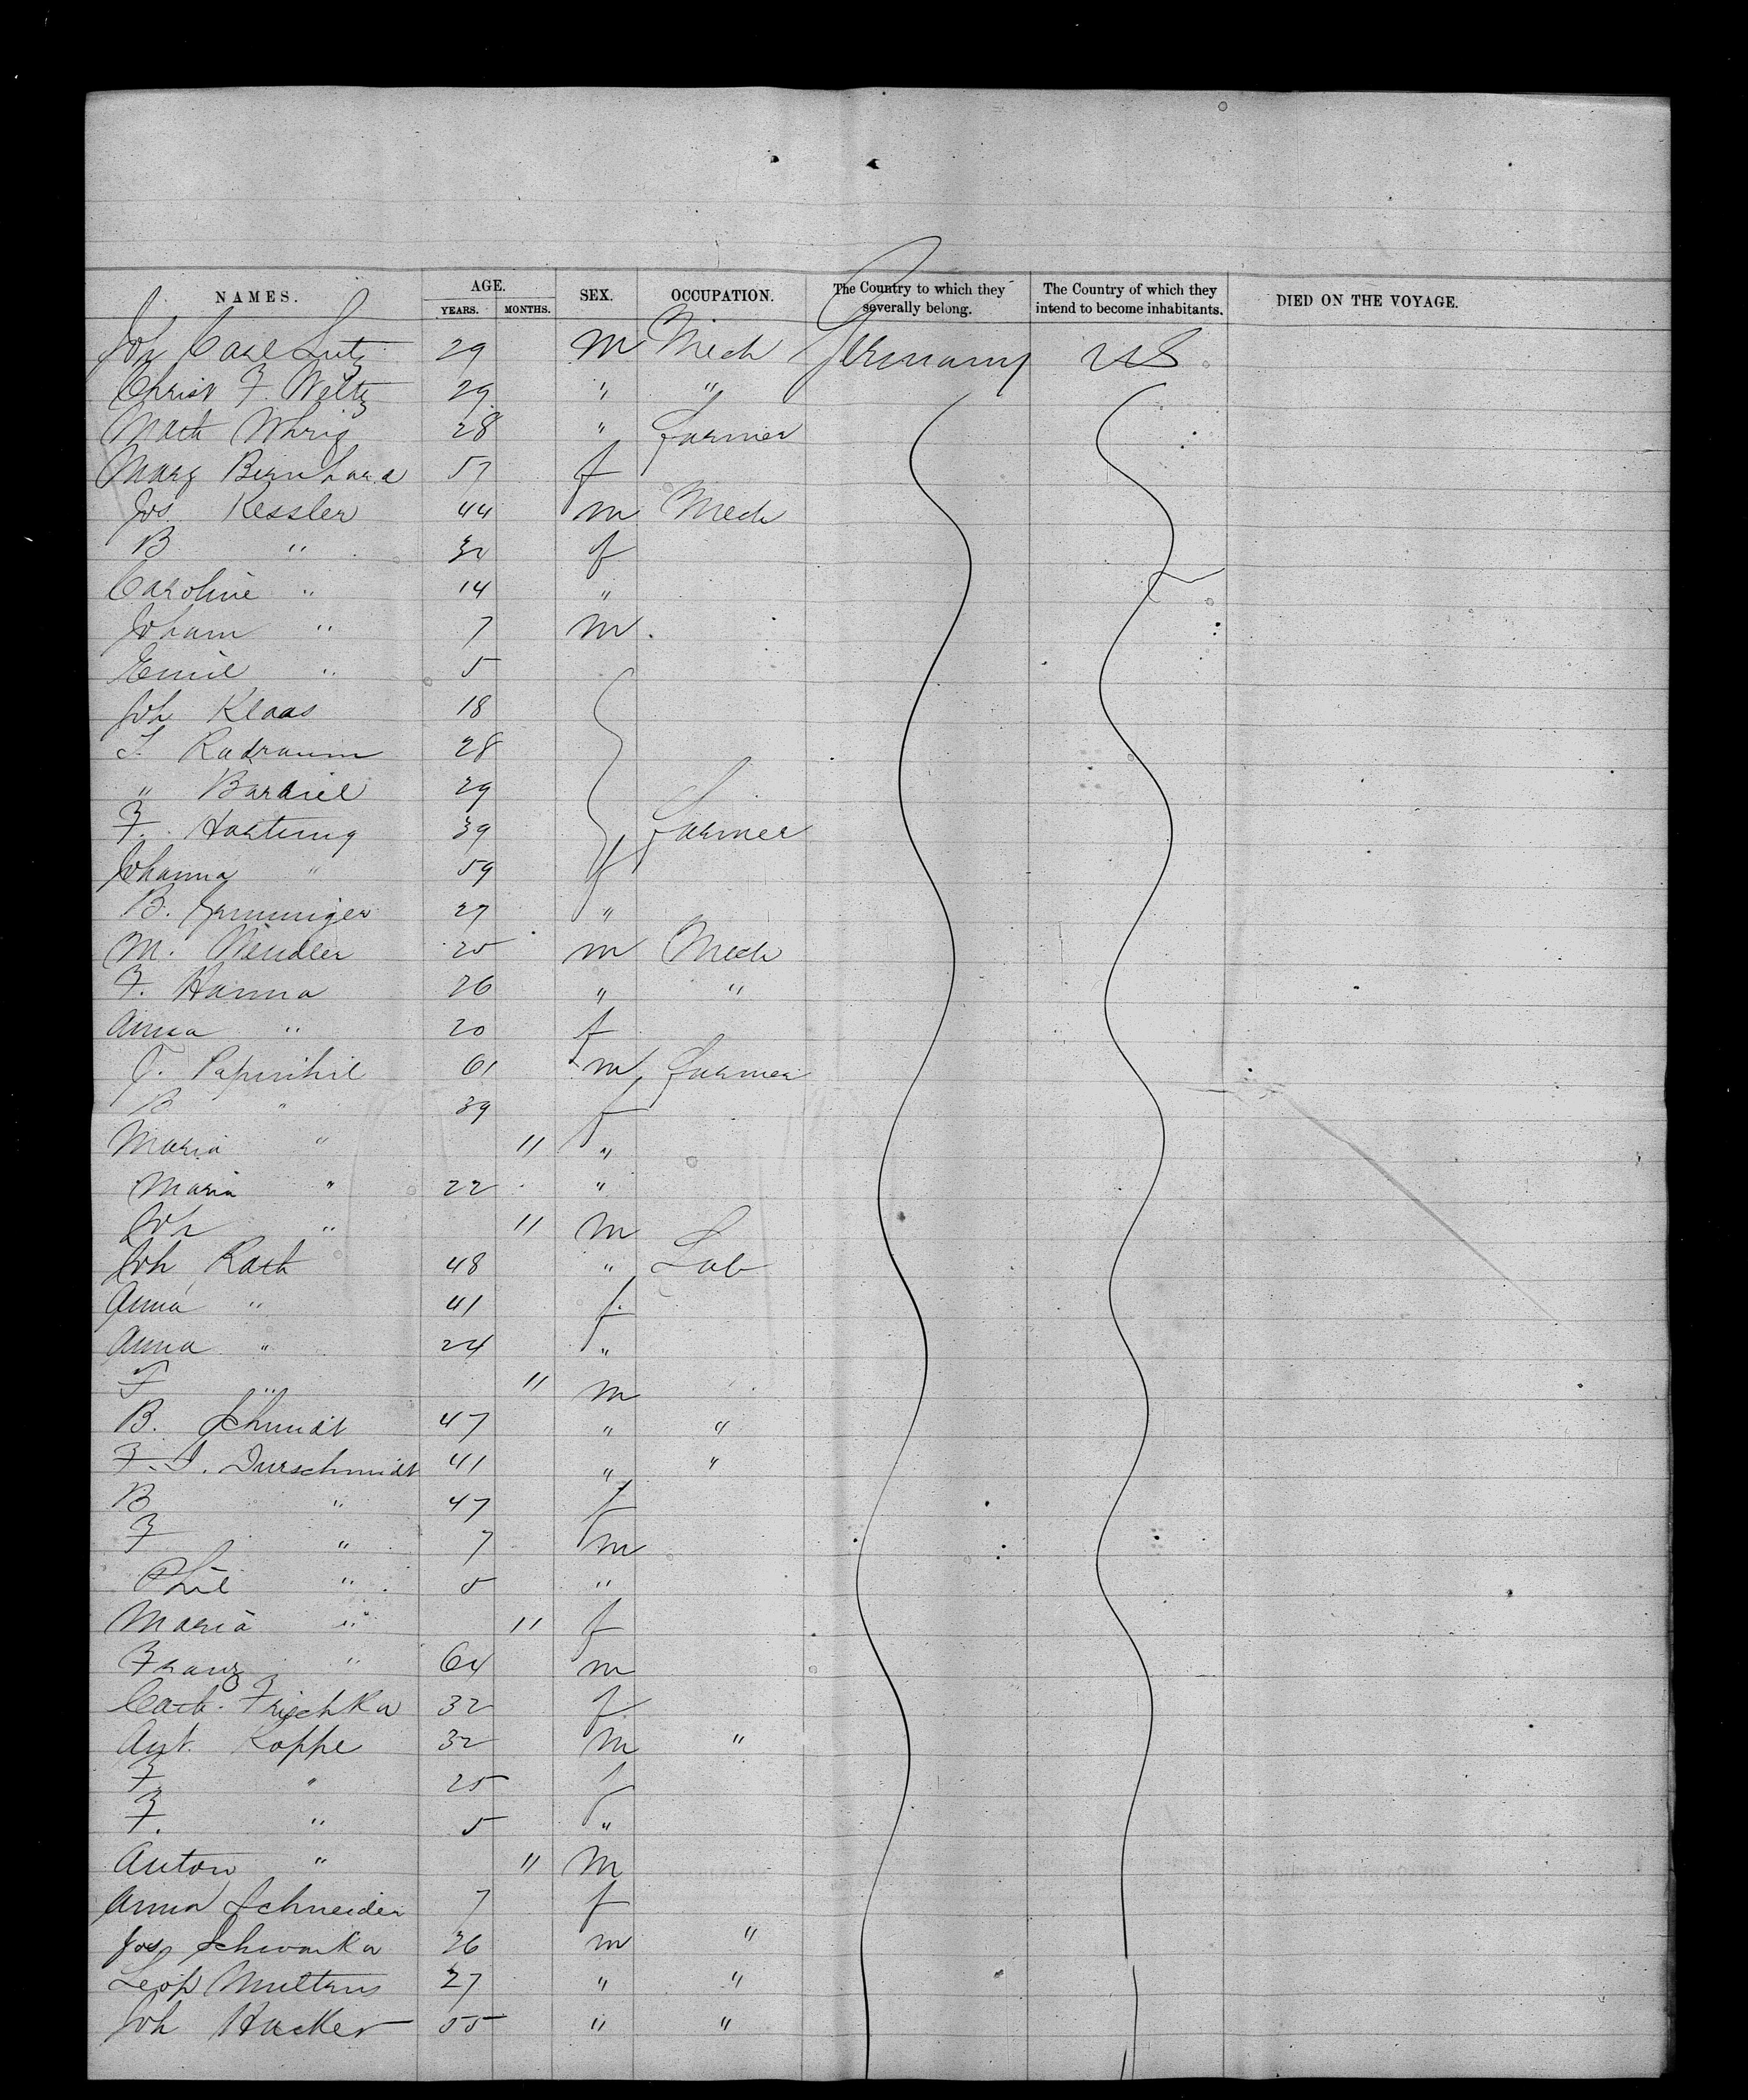 NAMES. AGE. SEX. OCCUPATION. The Country to which they severally belong. The Country of which they intend to become inhabitants. DIED ON THE VOYAGE.
YEARS. MONTHS.
Joh Carl Lutz 29 m Mech Germany US
Christ F. Weltz 29 " "
Math 28 " farmer
Marg Bernhard 57 f
Jos Kessler 44 m Mech
B " f
Caroline " 14 "
Joham " 7 m
Emil " 5
Joh Klaas 18
Radraum 28
" Bardiel 29
F. Hartung 39 farmer
Johanna " 59 f
B. 27 "
M. Wendler 25 m Mech
F. Hanna 26 " "
Anna " 20 f
J. 61 m farmer
B " 39 f
Maria " 11 "
Maria " 22 "
Joh " 11 m
Joh Rath 48 " Lab
Anna " 41 f
Anna " 24 "
F " 11 m
B. Schmidt 47 " "
F. J. Durschmidt 41 " "
B " 47 f
F " 7 m
Phil " 5 "
Maria " 11 f
Franz " 64 m
Cath. Frischka 32 f
Ant. Koppe 32 m "
F. " 25 f
F. " 5 "
Anton " 11 m
Anna Schneider 7 f
Jos Schwarka 26 m "
Leop Multrus 27 " "
Joh Hacker 55 " "